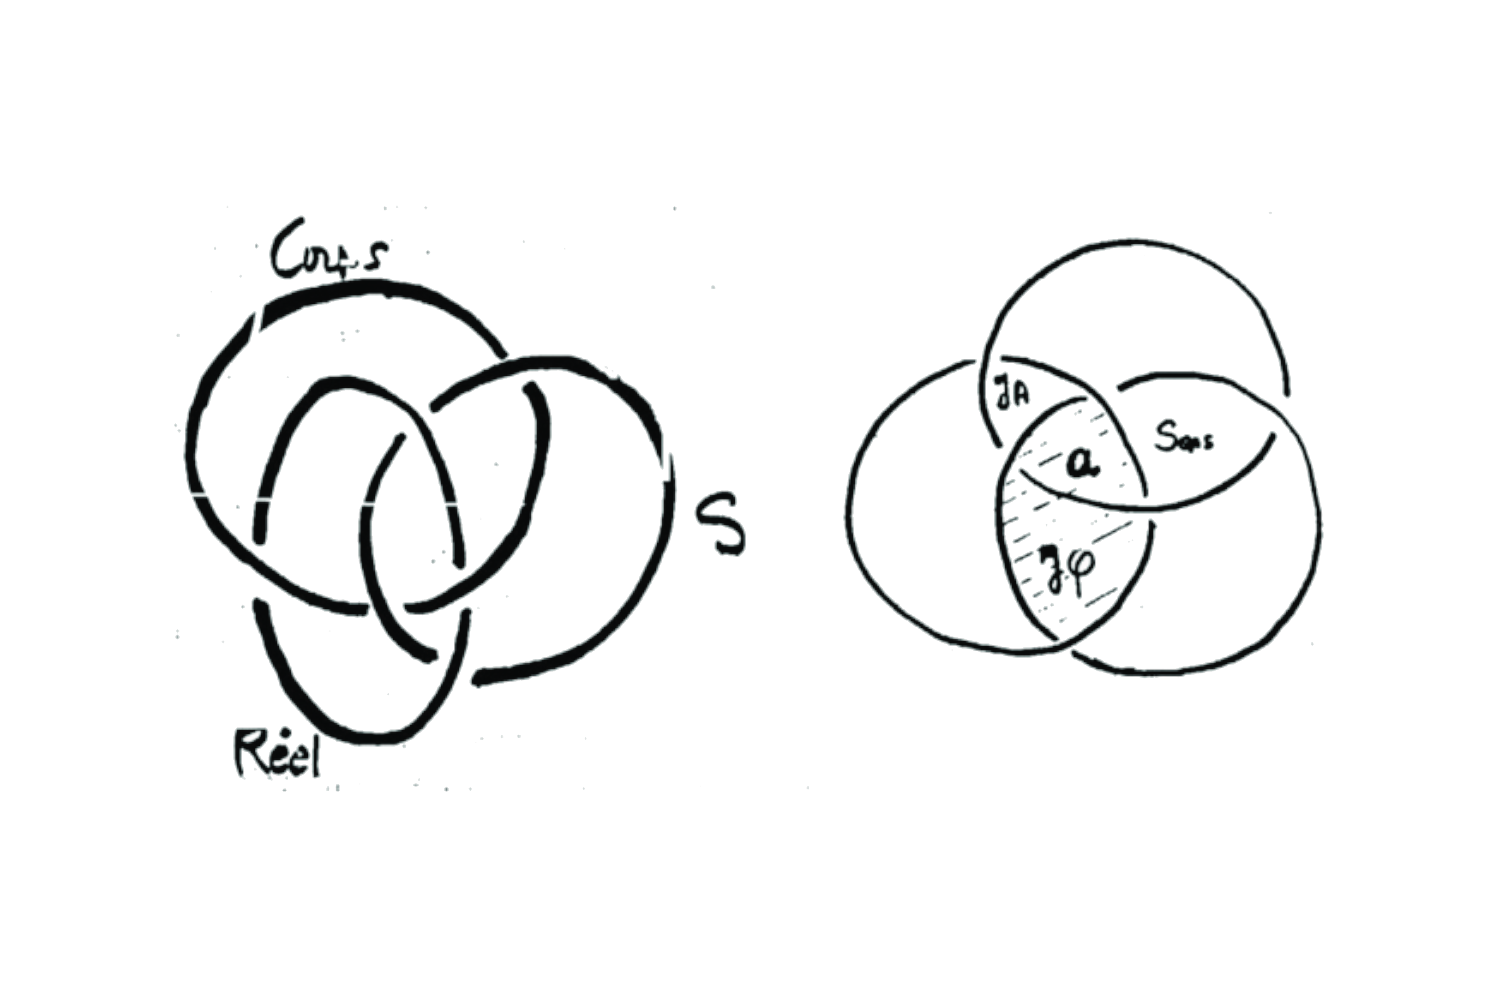 Corps
S
Réel
JA
Sens
a
Jφ